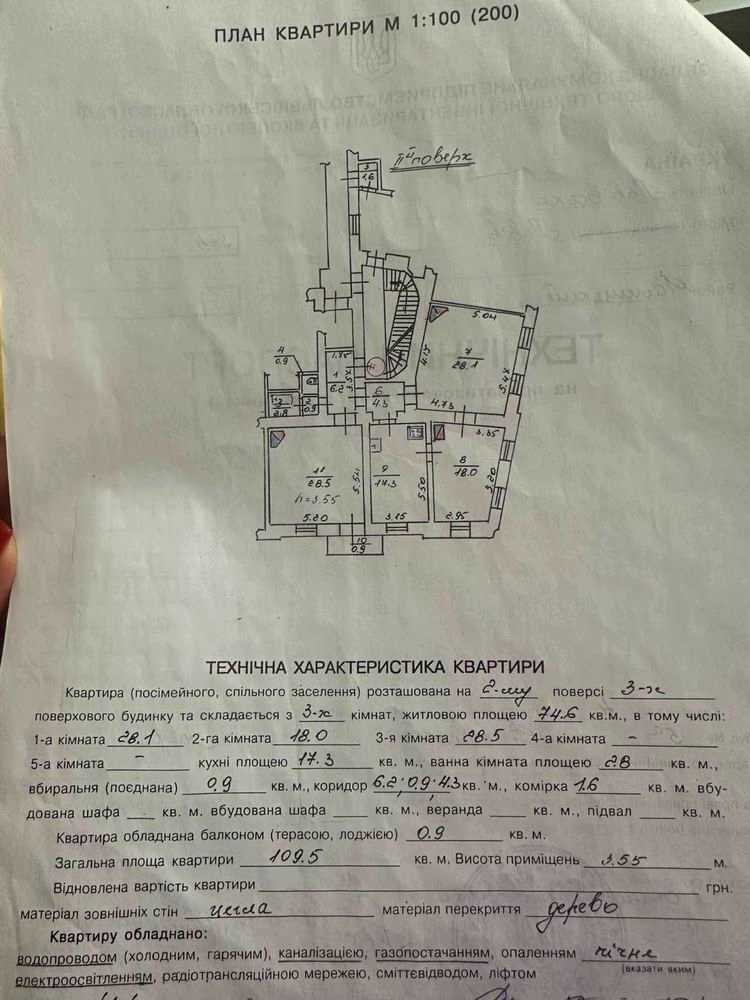 ПЛАН КВАРТИРИ М 1:100 (200)
IIй поверх
3
1.6
5.04
4
0.9
1.75
1
6.2
3.57
4.17
7
28.1
5.47
6
4.3
4.73
2.8
2
0.9
3.35
11
28.5
h=3.55
5.54
5.20
9
17.3
5.50
3.15
8
18.0
5.20
2.95
10
0.9
ТЕХНІЧНА ХАРАКТЕРИСТИКА КВАРТИРИ
Квартира (посімейного, спільного заселення) розташована на 2-му поверсі 3-х
поверхового будинку та складається з 3-х кімнат, житловою площею 74.6 кв.м., в тому числі:
1-а кімната 28.1 2-га кімната 18.0 3-я кімната 28.5 4-а кімната -
5-а кімната - кухні площею 17.3 кв. м., ванна кімната площею 2.8 кв. м.,
вбиральня (поєднана) 0.9 кв. м., коридор 6.2; 0.9; 4.3 кв. м., комірка 1.6 кв. м. вбу-
дована шафа ___ кв. м. вбудована шафа ___ кв. м., веранда ___ кв. м., підвал ___ кв. м.
Квартира обладнана балконом (терасою, лоджією) 0.9 кв. м.
Загальна площа квартири 109.5 кв. м. Висота приміщень 3.55 м.
Відновлена вартість квартири ___ грн.
матеріал зовнішніх стін цегла матеріал перекриття дерево
Квартиру обладнано:
водопроводом (холодним, гарячим), каналізацією, газопостачанням, опаленням пічне
(вказати яким)
електроосвітленням, радіотрансляційною мережею, сміттєвідводом, ліфтом